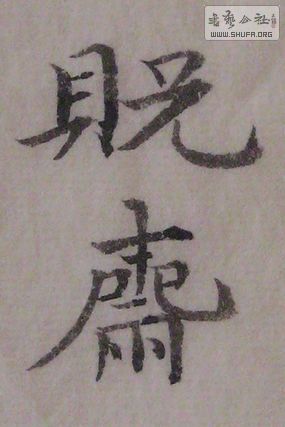 書藝公社
WWW.SHUFA.ORG
貺